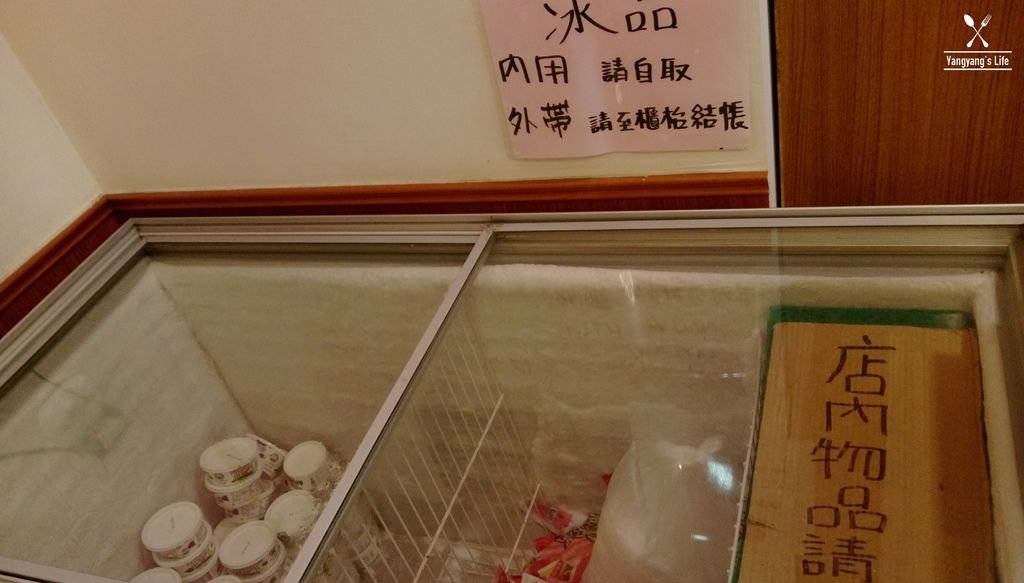 Yangyang's Life
冰品
內用 請自取
外帶 請至櫃枱結帳
店內物品請